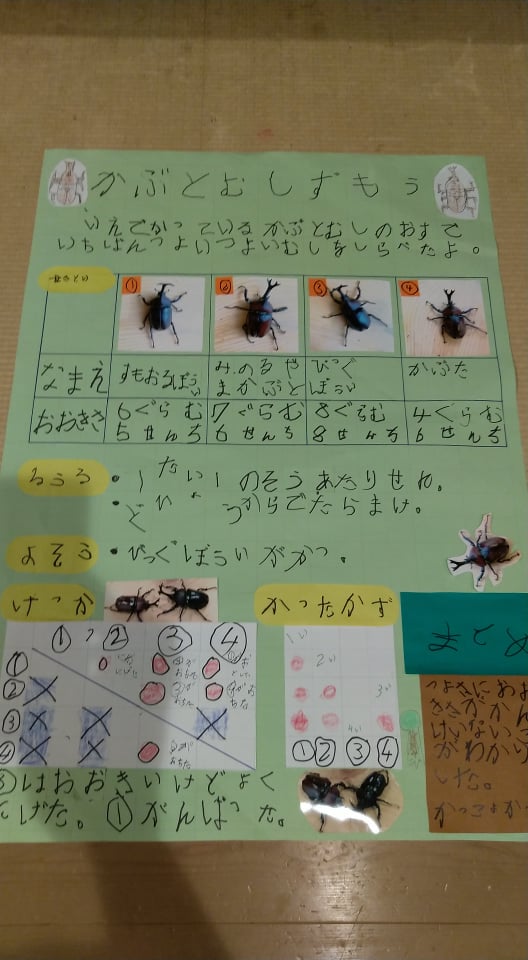 かぶとむしずもう
いえでかっているかぶとむしのおすで
いちばんつよいつよいむしをしらべたよ。
① ② ③ ④
なまえ すもおるぼうい みのるやまかぶと びっぐぼうい かぶた
おおきさ 6ぐらむ 5せんち 7ぐらむ 6せんち 8ぐらむ 8せんち 4ぐらむ 6せんち
るうる ・1たい1のそうあたりせん。
・どひょうからでたらまけ。
よそう ・びっぐぼういがかつ。
けっか かったかず まとめ
① ② ③ ④
①
②
③
④
1い
2い
3い
4い
① ② ③ ④
つよさにおお
きさがかん
けいないこ
がわから
した。
かっこよか
③はおおきいけどよく
にげた。①がんばった。